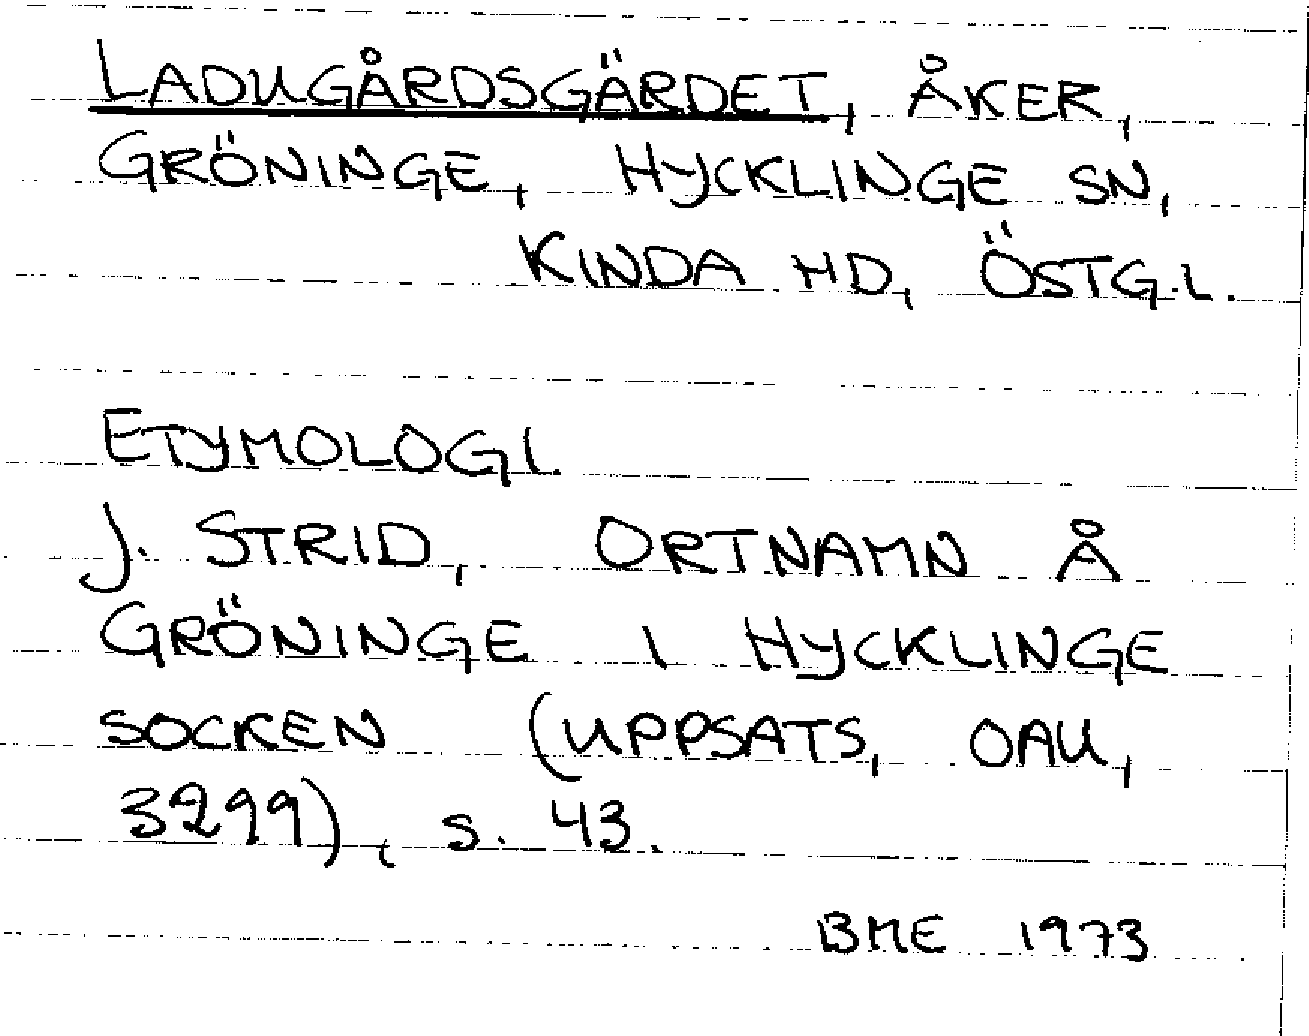 LADUGÅRDSGÄRDET, ÅKER,
GRÖNINGE, HYCKLINGE SN,
KINDA HD, ÖSTG.L.
ETYMOLOGI.
J. STRID, ORTNAMN Å
GRÖNINGE I HYCKLINGE
SOCKEN (UPPSATS, OAU,
3299), S. 43.
BME 1973